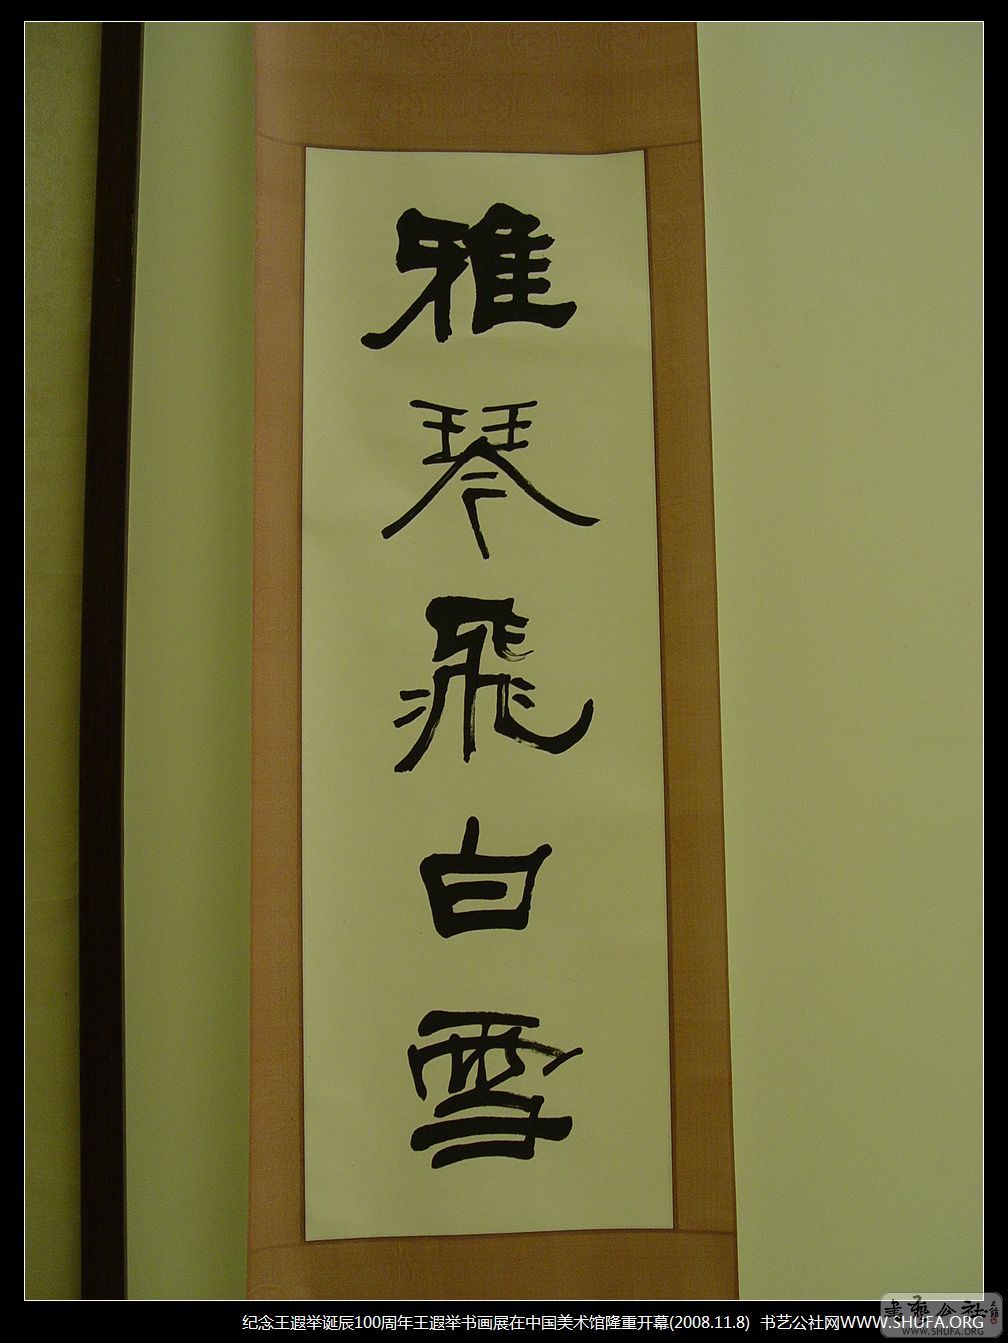 雅琴飛白雪
纪念王遐举诞辰100周年王遐举书画展在中国美术馆隆重开幕(2008.11.8) 书艺公社网WWW.SHUFA.ORG
書藝公社
WWW.SHUFA.ORG